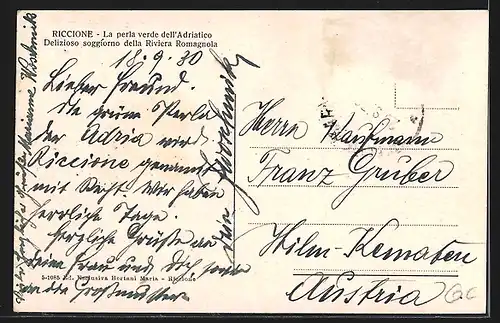 RICCIONE - La perla verde dell'Adriatico
Delizioso soggiorno della Riviera Romagnola
18.9.30
Lieber Freund.
die grüne Perla
der Adria wird
Riccione genannt
mit Recht. Wir haben
herrliche Tage.
Herzliche Grüße an
deine Frau und Dich sowie
an die Großmutter
Herrn Kaufmann
Franz Gruber
Hilm-Kematen
Austria
Grüße Marianne